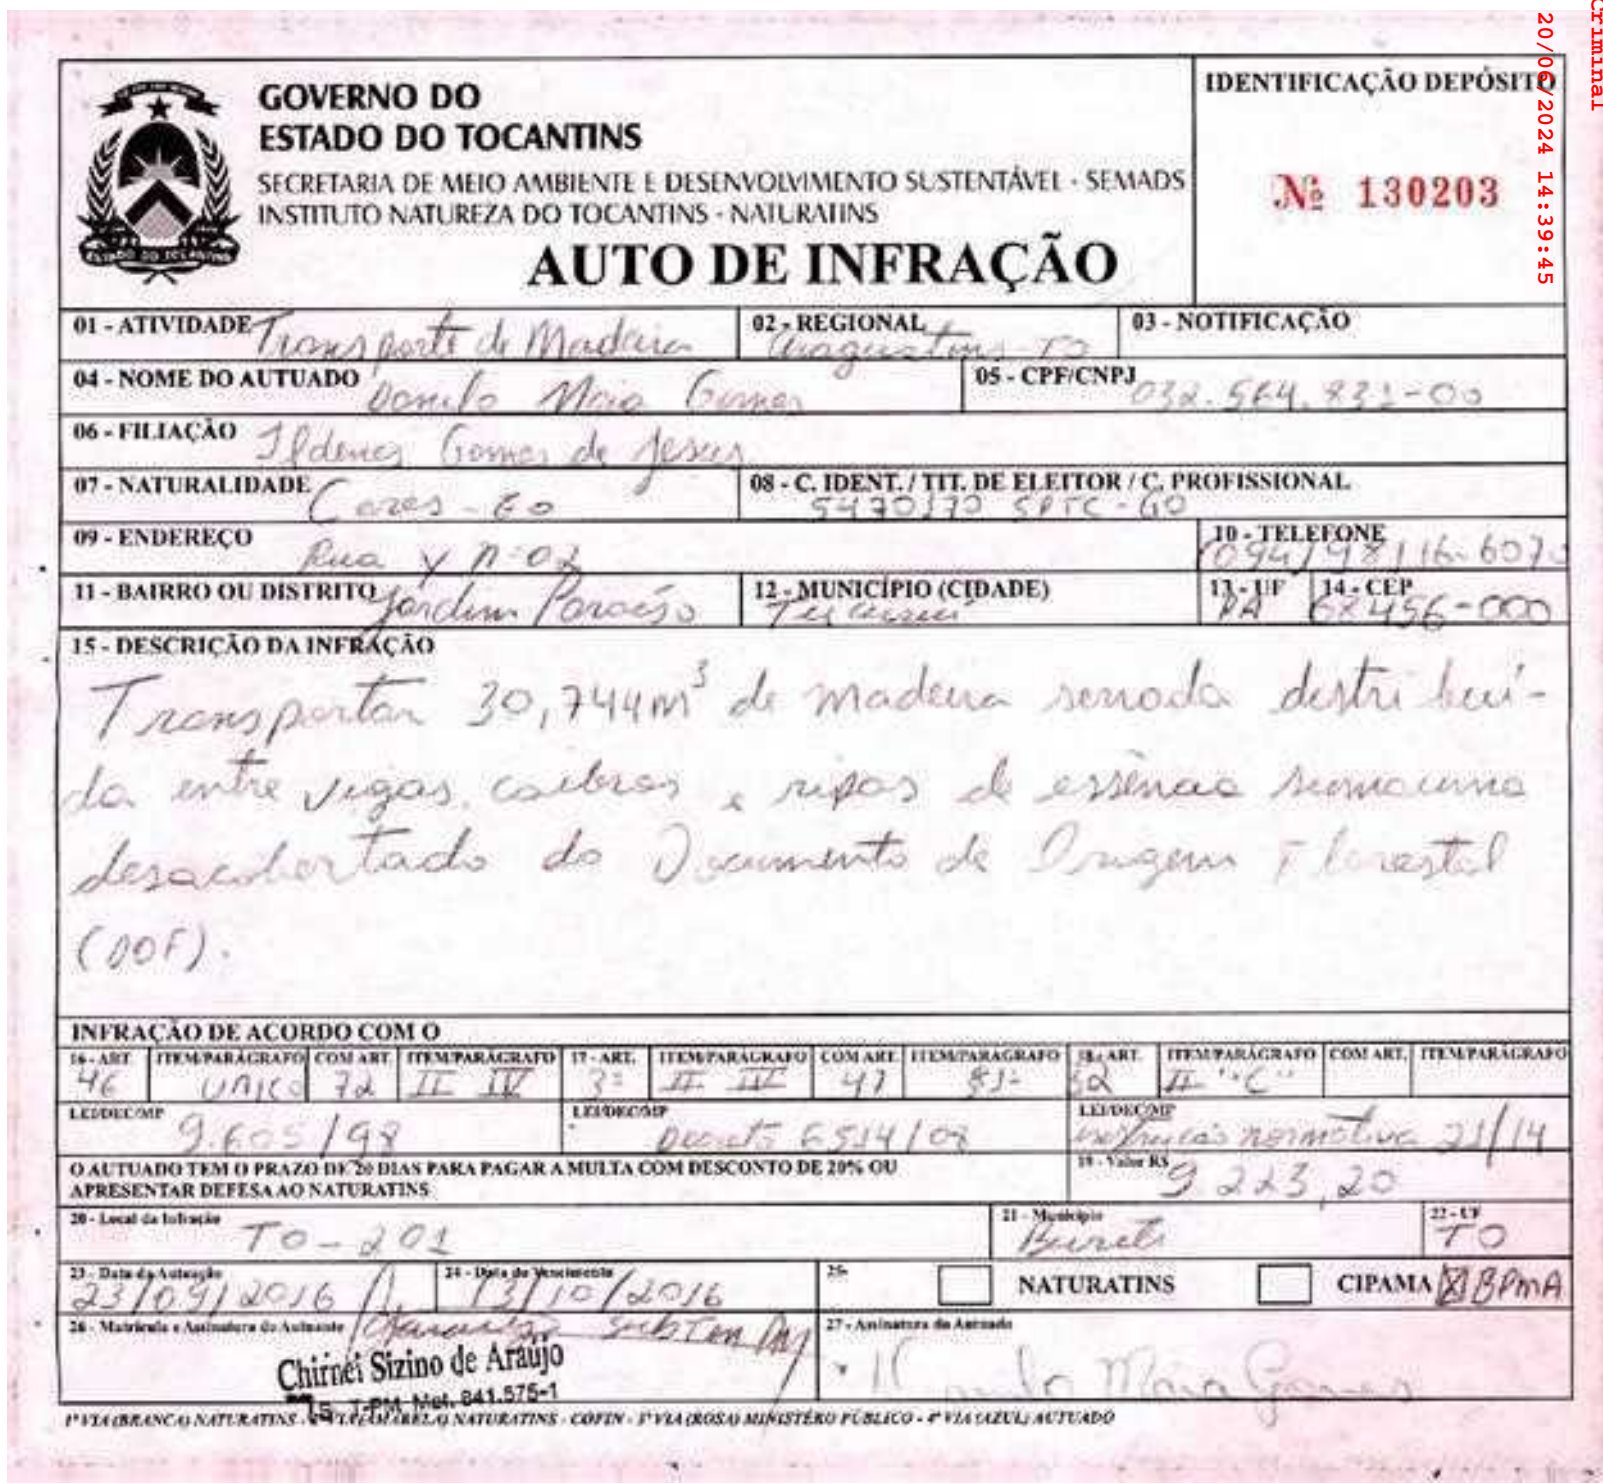 Criminal
20/06/2024 14:39:45
GOVERNO DO
ESTADO DO TOCANTINS
SECRETARIA DE MEIO AMBIENTE E DESENVOLVIMENTO SUSTENTÁVEL - SEMADS
INSTITUTO NATUREZA DO TOCANTINS - NATURATINS
AUTO DE INFRAÇÃO
IDENTIFICAÇÃO DEPÓSITO
Nº 130203
01 - ATIVIDADE Transporte de Madeira 02 - REGIONAL Araguatins - TO 03 - NOTIFICAÇÃO
04 - NOME DO AUTUADO Danilo Maia Gomes 05 - CPF/CNPJ 032.564.831-00
06 - FILIAÇÃO Ildenes Gomes de Jesus
07 - NATURALIDADE Ceres - GO 08 - C. IDENT. / TIT. DE ELEITOR / C. PROFISSIONAL 5470170 SPTC - GO
09 - ENDEREÇO Rua Y nº 02 10 - TELEFONE (094) 98116-6070
11 - BAIRRO OU DISTRITO Jardim Paraíso 12 - MUNICÍPIO (CIDADE) Tucuruí 13 - UF PA 14 - CEP 68456-000
15 - DESCRIÇÃO DA INFRAÇÃO
Transportar 30,744m³ de madeira serrada distribuí-
da entre vigas, caibros e ripas de essência sumauma
desacobertado do Documento de Origem Florestal
(DOF).
INFRAÇÃO DE ACORDO COM O
16 - ART. ITEM/PARÁGRAFO COM ART. ITEM/PARÁGRAFO 17 - ART. ITEM/PARÁGRAFO COM ART. ITEM/PARÁGRAFO 18 - ART. ITEM/PARÁGRAFO COM ART. ITEM/PARÁGRAFO
46 UNICO 72 II IV 3º II IV 47 §1º 52 II "C"
LEI/DEC/MP 9.605/98 LEI/DEC/MP Decreto 6514/08 LEI/DEC/MP instrução normativa 21/14
O AUTUADO TEM O PRAZO DE 20 DIAS PARA PAGAR A MULTA COM DESCONTO DE 20% OU
APRESENTAR DEFESA AO NATURATINS
19 - Valor R$ 9.223,20
20 - Local da Infração TO - 201 21 - Município Buriti 22 - UF TO
23 - Data da Autuação 23/09/2016 24 - Data do Vencimento 13/10/2016 25- NATURATINS CIPAMA X BPMA
26 - Matrícula e Assinatura do Autuante SubTen PM 27 - Assinatura do Autuado
Chirnei Sizino de Araújo Danilo Maia Gomes
Mat. 841.575-1
1ª VIA (BRANCA) NATURATINS - 2ª VIA (AMARELA) NATURATINS - COFIN - 3ª VIA (ROSA) MINISTÉRO PÚBLICO - 4ª VIA (AZUL) AUTUADO